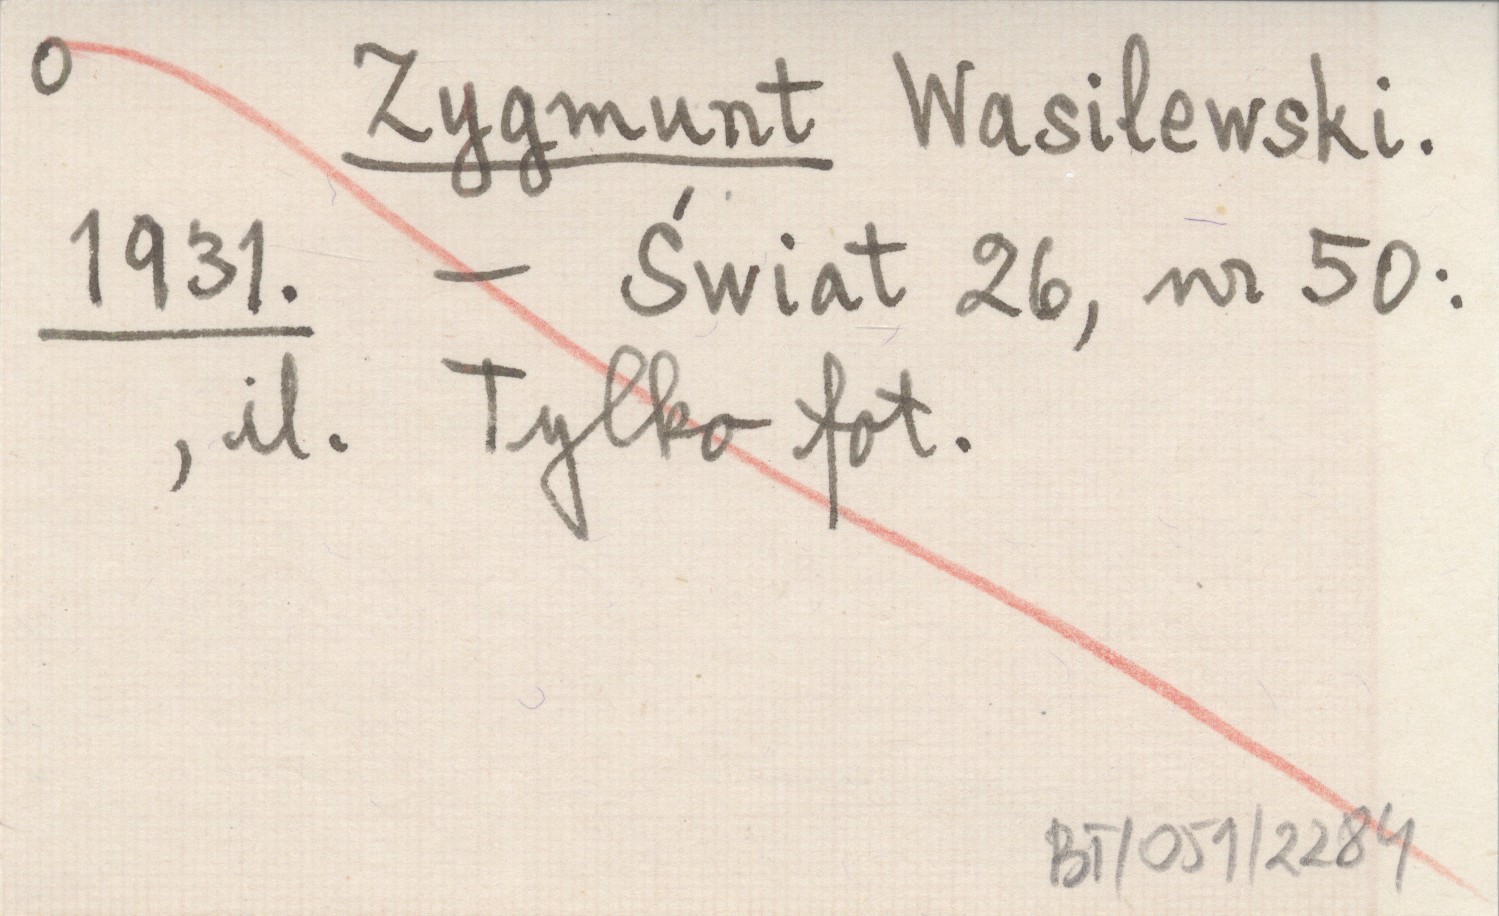 o Zygmunt Wasilewski.
1931. — Świat 26, nr 50:
, il. Tylko fot.
BT/051/2284